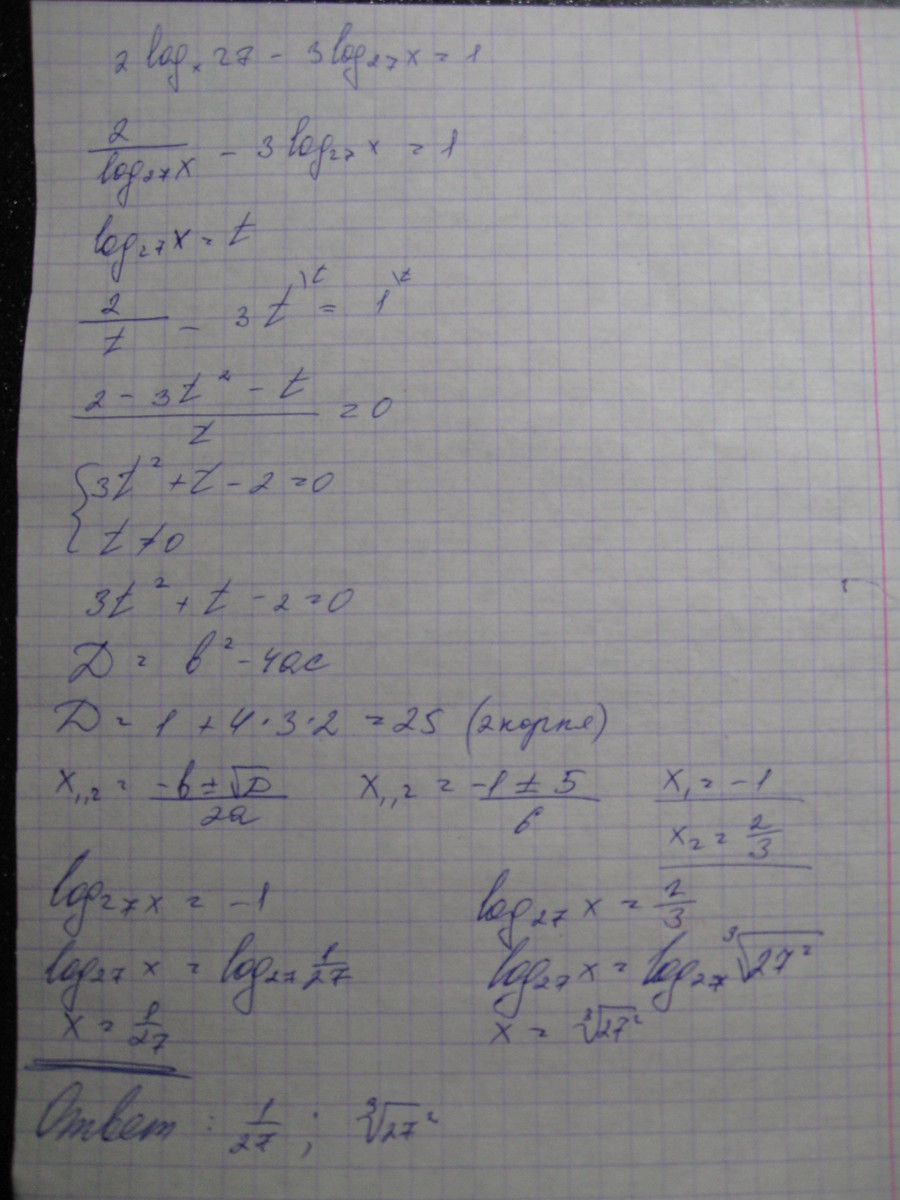 2 logₓ 27 - 3 log₂₇ x = 1
2/log₂₇ x - 3 log₂₇ x = 1
log₂₇ x = t
2/t - 3t\ᵗ = 1\ᵗ
(2 - 3t² - t)/t = 0
{3t² + t - 2 = 0
t ≠ 0
3t² + t - 2 = 0
D = b² - 4ac
D = 1 + 4·3·2 = 25 (2 корня)
x₁,₂ = (-b ± √D)/2a x₁,₂ = (-1 ± 5)/6 x₁ = -1
x₂ = 2/3
log₂₇ x = -1 log₂₇ x = 2/3
log₂₇ x = log₂₇ 1/27 log₂₇ x = log₂₇ ∛27²
x = 1/27 x = ∛27²
Ответ: 1/27 ; ∛27²